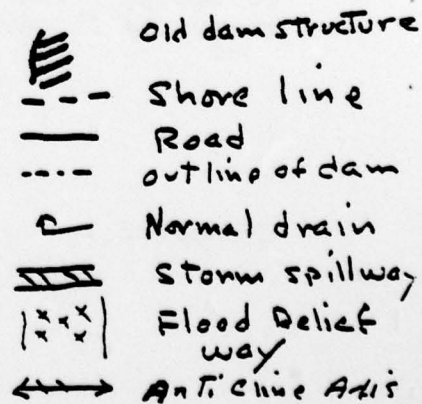 old dam structure
Shore line
Road
outline of dam
Normal drain
Storm spillway
Flood Relief
way
AnTi Cline Axis